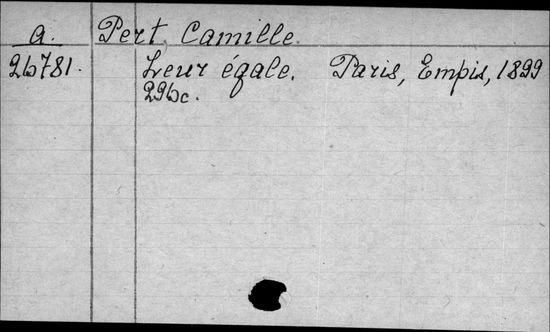 a. Pert, Camille.
26781. Leur égale. Paris, Empis, 1899
296c.